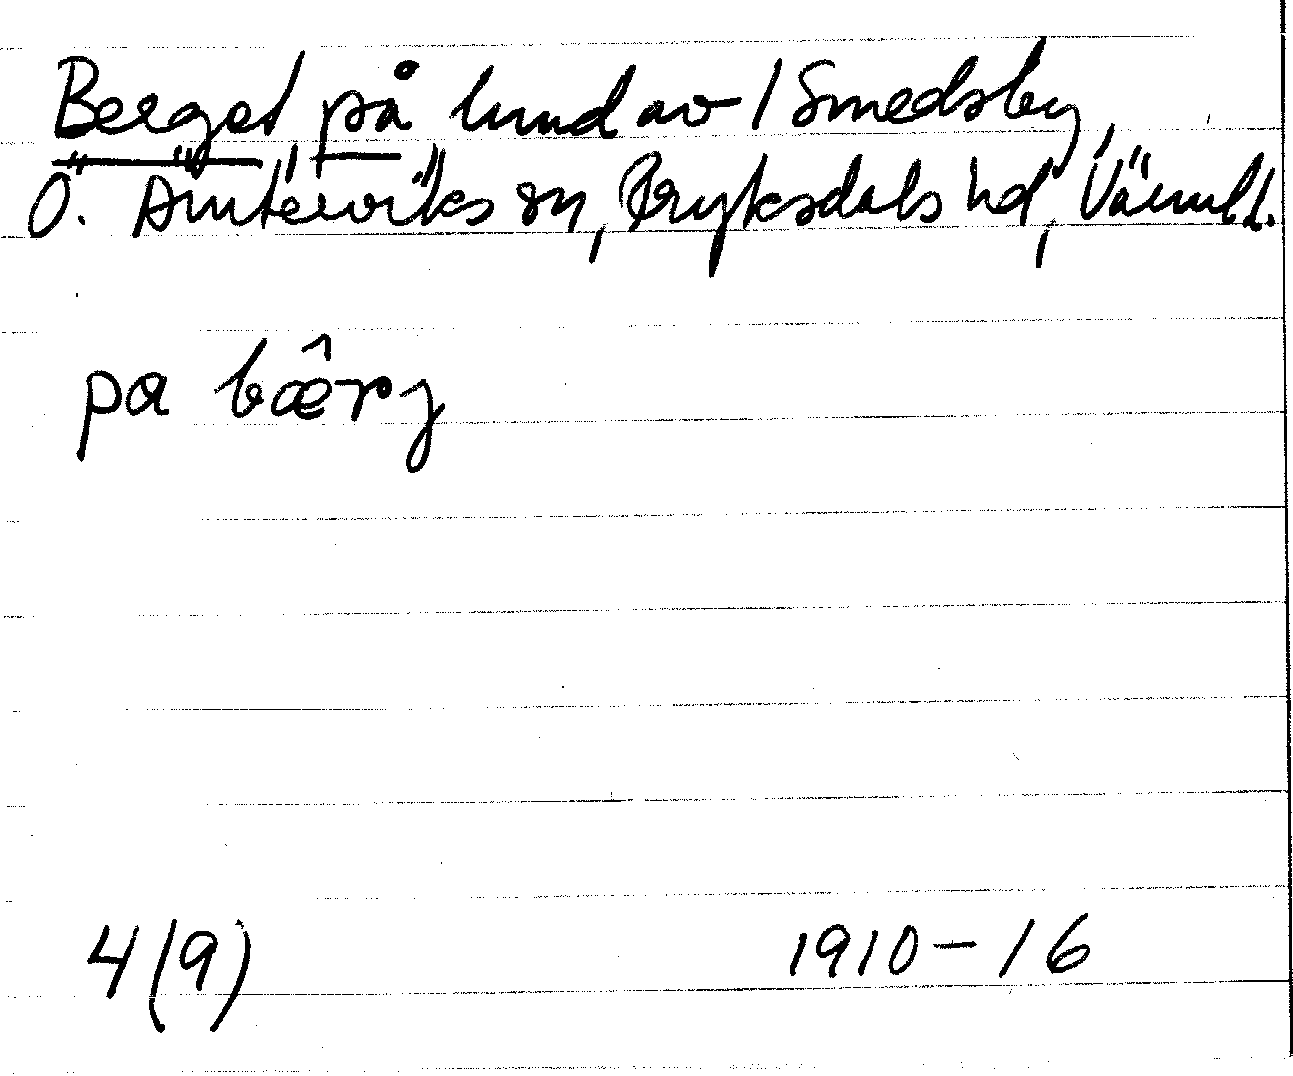 Berget på hmd av 1 Smedsby,
Ö. Ämterviks sn, Fryksdals hd, Värml.
pa bæ̂rj
4(9) 1910-16